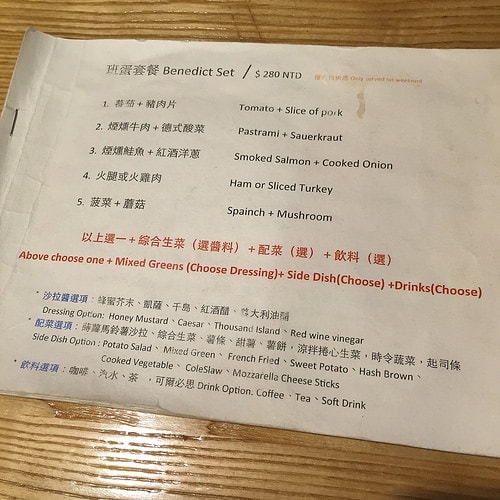 班蛋套餐 Benedict Set / $ 280 NTD Only served on weekend
1. 蕃茄+豬肉片 Tomato + Slice of pork
2. 煙燻牛肉+德式酸菜 Pastrami + Sauerkraut
3. 煙燻鮭魚+紅酒洋蔥 Smoked Salmon + Cooked Onion
4. 火腿或火雞肉 Ham or Sliced Turkey
5. 菠菜+蘑菇 Spainch + Mushroom
以上選一+綜合生菜（選醬料）+配菜（選）+飲料（選）
Above choose one + Mixed Greens (Choose Dressing)+ Side Dish(Choose) +Drinks(Choose)
* 沙拉醬選項：蜂蜜芥末、凱薩、千島、紅酒醋、義大利油醋
Dressing Option: Honey Mustard、Caesar、Thousand Island、Red wine vinegar
* 配菜選項：蒔蘿馬鈴薯沙拉，綜合生菜、薯條、甜薯、薯餅，涼拌捲心生菜，時令蔬菜，起司條
Side Dish Option : Potato Salad、Mixed Green、French Fried、Sweet Potato、Hash Brown、
Cooked Vegetable、ColeSlaw、Mozzarella Cheese Sticks
* 飲料選項：咖啡、汽水、茶，可爾必思 Drink Option: Coffee、Tea、Soft Drink